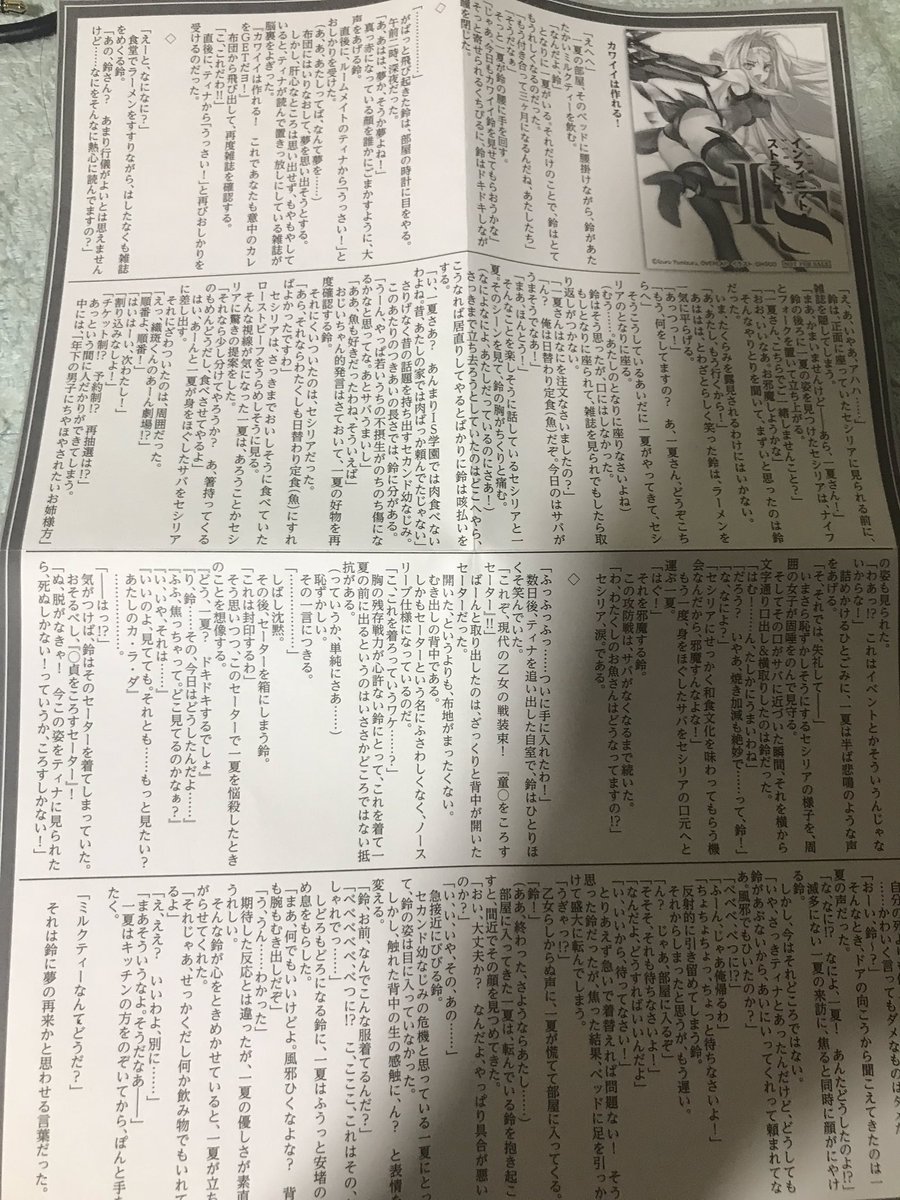 インフィニット・ストラトス
IS
©Izuru Yumizuru, OVERLAP
NOT FOR SALE
カワイイは作れる!
「えへへ」
一夏の部屋、そのベッドに腰掛けながら、鈴があた
たかいミルクティーを飲む。
「なんだよ、鈴」
となりに一夏がいる。それだけのことで、鈴はとて
もうれしくなるのだった。
「もう付き合って三ヶ月になるんだね、あたしたち」
「そうだなぁ」
そっと一夏が鈴の腰に手を回す。
「じゃあ、今日もカワイイ鈴を見せてもらおうかな」
そっと寄せられるくちびるに、鈴はドキドキしなが
ら瞳を閉じた。
◇
「…………」
がばっと飛び起きた鈴は、部屋の時計に目をやる。
午前二時、深夜だった。
「あ、あはは、夢か、そうか夢よね!」
真っ赤になっている顔を誰かにごまかすように、大
声をあげる鈴。
直後に、ルームメイトのティナから「うっさい!」と
おしかりを受けた。
(あ、あ、あたしってば、なんて夢を……)
布団にはいりなおして、夢を思い出そうとする。
しかし、肝心なところは思い出せず、もやもやして
いると、ティナが読んで置きっ放しにしている雑誌が
脳裏をよぎった。
『カワイイは作れる! これであなたも意中のカレ
をGETだヨ!』
布団から飛び出して、再度雑誌を確認する。
「こ、これだわ!」
直後に、ティナから「うっさい!」と再びおしかりを
受けるのだった。
◇
「えーと、なになに?」
食堂でラーメンをすすりながら、はしたなくも雑誌
をめくる鈴。
「あの、鈴さん? あまり行儀がよいとは思えません
けど……なにをそんなに熱心に読んでますの?」
「え、あ、いやぁ、アハハ……」
鈴は、正面に座っていたセシリアに見られる前に、
雑誌を隠してしまう。
「まあ、かまいませんけど――あら、一夏さん!」
鈴の後ろに一夏の姿を見つけたセシリアは、ナイフ
とフォークを置いて立ち上がる。
「一夏さん、こちらでご一緒しませんこと?」
「ん? いいな、お邪魔しようかな」
一夏のとなりとを聞いて、まずいと思ったのは鈴
だった。
いま、たくらみを露見されるわけにはいかない。
「あ、あたし、もう行くから!」
はははは、とわざとらしく笑った鈴は、ラーメンを
一気に平らげる。
「もう、何をしてますの? あ、一夏さん、どうぞこち
らへ」
そうこうしているあいだに一夏がやってきて、セシ
リアのとなりに座る。
(むう……。あたしのとなりに座りなさいよね)
鈴はそう思ったが、口にはしなかった。
もしとなりに座られて、雑誌を見られでもしたら取
り返しがつかない。
「一夏さんはなにを注文なさいましたの?」
「ん? 俺は日替わり定食(魚)だぞ。今日のはサバが
うまそうでなあ!」
「まあ、ほんとう」
そんなことを楽しそうに話しているセシリアと一
夏。そのシーンを見て、鈴の胸がちくりと痛む。
(なによなによ、あたしだっているのにさあ!)
さっきまで立ち去ろうとしていたのはどこへやら、
こうなれば居直りしてやるとばかりに鈴は咳払いを
する。
「い、一夏さあ? あんまりIS学園では肉食べない
わよね。昔、あたしの家では肉ばっか頼んでたじゃない」
さりげなく昔の話題を持ち出すセカンド幼なじみ。
このあたりのつきあいの長さでは、鈴に分がある。
「うーん、やっぱ若いうちの不摂生がのちのち傷にな
るかなと思ってな。あとサバうまいし」
「ああ、魚も好きだったわね、そういえば」
おじいちゃん的発言はさておいて、一夏の好物を再
度確認する鈴。
それにくいついたのは、セシリアだった。
「あら、それならわたくしも日替わり定食(魚)にすれ
ばよかったですわ」
セシリアは、さっきまでおいしそうに食べていた
ローストビーフをうらめしそうに見る。
そんな視線が気になった一夏は、あろうことかセシ
リアに驚きの提案をした。
「それなら少し分けてやろうか? あ、箸持ってくる
のめんどうだし、食べさせてやるよ」
はい、あーんと一夏が身をほぐしたサバをセシリア
に差し出す。
それにざわついたのは、周囲だった。
「えっ、織斑くんのあーん劇場!?」
「順番よ、順番!」
「はいはーい、次わたしー!」
「割り込みなしよ!」
「チケット制!? 予約制!? 再抽選は!?」
あっという間に人だかりができてしまう。
中には、「年下の男子にちやほやされたいお姉様方」
の姿も見られた。
「わあっ!? これはイベントとかそういうんじゃな
いからな!」
詰めかけるひとごみに、一夏は半ば悲鳴のような声
をあげる。
「そ、それでは、失礼して――」
いまさら恥ずかしそうにするセシリアの様子を、周
囲の女子が固唾をのんで見守る。
そしてその口がサバに近づいた瞬間、それを横から
文字通り口出し&横取りしたのは鈴だった。
「はむ!……んー、たしかにうまいわね」
「だろう? いやぁ、焼き加減も絶妙で……って、鈴!」
「なによ?」
「セシリアにせっかく和食文化を味わってもらう機
会なんだから、邪魔すんなよな!」
もう一度、身をほぐしたサバをセシリアの口元へと
運ぶ一夏。
「はぐ!」
それを邪魔する鈴。
この攻防戦は、サバがなくなるまで続いた。
「わ、わたくしのお魚さんはどうなってますの!?」
セシリア、涙、である。
◇
「ふっふっふっ……ついに手に入れたわ!」
数日後、ティナを追い出した自室で、鈴はひとりほ
くそ笑んでいた。
「これぞ、現代の乙女の戦装束! 『童○をころす
セーター』!!」
ばばーんと取り出したのは、ざっくりと背中が開いた
セーターだった。
開いた、というよりも、布地がまったくない。
むき出しの背中である。
しかもセーターという名にふさわしくなく、ノース
リーブ仕様になっているのだ。
「こ、これを着ろっていうワケ……?」
胸の残存戦力が心許ない鈴にとって、これを着て一
夏の前に出るというのはいささかどころではない抵
抗がある。
(っていうか、単純にさあ……)
恥ずかしい。
その一言につきる。
しばし沈黙。
その後、セーターを箱にしまう鈴。
「これは封印するわ」
そう思いつつ、このセーターで一夏を悩殺したとき
のことを想像する。
『どう、一夏? ドキドキするでしょ』
『り、鈴……その、今日はどうしたんだよ……』
『ふふ、焦っちゃって。どこ見てるのかなぁ?』
『い、いや、それは……』
『いいのよ、見てても。それとも……もっと見たい?
あたしのカ・ラ・ダ』
「――はっ!?」
気がつけば、鈴はそのセーターを着てしまっていた。
おそるべし、『○貞をころすセーター』!
「ぬ、脱がなきゃ! 今この姿をティナに見られた
ら、死ぬしかない!っていうか、ころすしかない!」
……かわいく言ってもダメなものはダメだった。
「お――い、鈴?」
そんなとき、ドアの向こうから聞こえてきたのは一
夏の声だった。
「なっ、なに!? なによ、一夏! あんたどうしたのよ!?」
滅多にない一夏の来訪に、焦ると同時に顔がにやけ
る鈴。
しかし、今はそれどころではない。
「いや、さっきティナとあったんだけど、どうしても
鈴があぶないから、あいにいってくれって頼まれてな
あ。風邪でもひいたのか?」
「べべべべ、べつに!?」
「ふーん、じゃあ俺帰るわ」
「ちょちょちょっ、ちょっと待ちなさいよ!」
反射的に引き留めてしまう鈴。
それからしまったと思うが、もう遅い。
「ん? じゃあ、部屋に入るぞ」
「そそそ、それも待ちなさいよ!」
「なんだよ、どうすればいいんだよ」
「い、いいから、待ってなさい!」
とりあえず急いで着替えれば問題ない――そう
思った鈴だったが、焦った結果、ベッドに足を引っか
けて盛大に転んでしまう。
「うぎゃっ!?」
乙女らしからぬ声に、一夏が慌てて部屋に入ってくる。
「鈴!」
(ああ、終わった、さようならあたし……)
部屋に入ってきた一夏は、転んでいる鈴を抱き起こ
すと、間近でその顔を見つめてきた。
「おい、大丈夫か? なんだよ、やっぱり具合が悪い
のか?」
「い、いいや、その、あの……」
急接近にびびる鈴。
セカンド幼なじみの危機と思っている一夏にとっ
て、鈴の姿は目に入っていなかった。
しかし、触れた背中の生の感触に、ん? と表情を
変える。
「鈴、お前、なんでこんな服着てるんだ?」
「べべべべ、べつに!? こ、ここ、これはその、お
しゃれでっ……」
しどろもどろになる鈴に、一夏はふうっと安堵の
ため息をもらした。
「まあ、何でもいいけどよ。風邪ひくなよな? 背中
も腕もむき出しだぞ」
「う、うん……わかった」
期待した反応とは違ったが、一夏の優しさが素直に
うれしい。
そんな鈴が心をときめかせていると、一夏が立ち上
がらせてくれた。
「それじゃあ、せっかくだし何か飲み物でもいれて
るよ」
「え、ええ? い、いいわよ、別に……」
「まあそういうなよ。そうだなあ――」
一夏はキッチンの方をのぞいてから、ぽんと手を
たたく。
「ミルクティーなんてどうだ?」
それは鈴に夢の再来かと思わせる言葉だった。